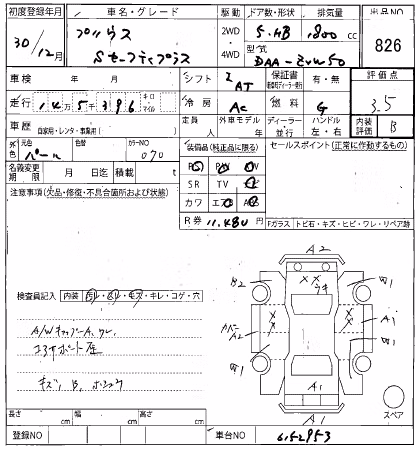 初度登録年月 車名・グレード 駆動 ドア数・形状 排気量 出品NO
30年12月 プリウス 2WD 5.HB 1800 cc 826
Sセーフティプラス 4WD 型式 DAA-ZVW50
車検 年 月 シフト AT 保証書 有・無 評価点
走行 14万5千396 キロ マイル 冷房 AC 燃料 G 3.5
車歴 自家用・レンタ・事業用( ) 定員 人 外車モデル 年 ディーラー 並行 ハンドル 左・右 内装評価 B
外色 元色 パール 色替 カラーNO 070 装備品(純正品に限る) セールスポイント(正常に作動するもの)
名義変更期限 月 日迄 積載 t PS PW
注意事項(欠品・修復・不具合箇所および状態) SR TV
カワ エアB
R券 11.480 円 Fガラス トビ石・キズ・ヒビ・ワレ・リペア跡
A2
検査員記入 内装 汚レ・スレ・キズ・キレ・コゲ・穴
B2 W1
A/W キャップA、ワレ カバー A2 A1
W1 W1
キズ、B、
A1
A1 スペア
長さ cm 幅 cm 高さ cm
登録NO 車台NO 6152953